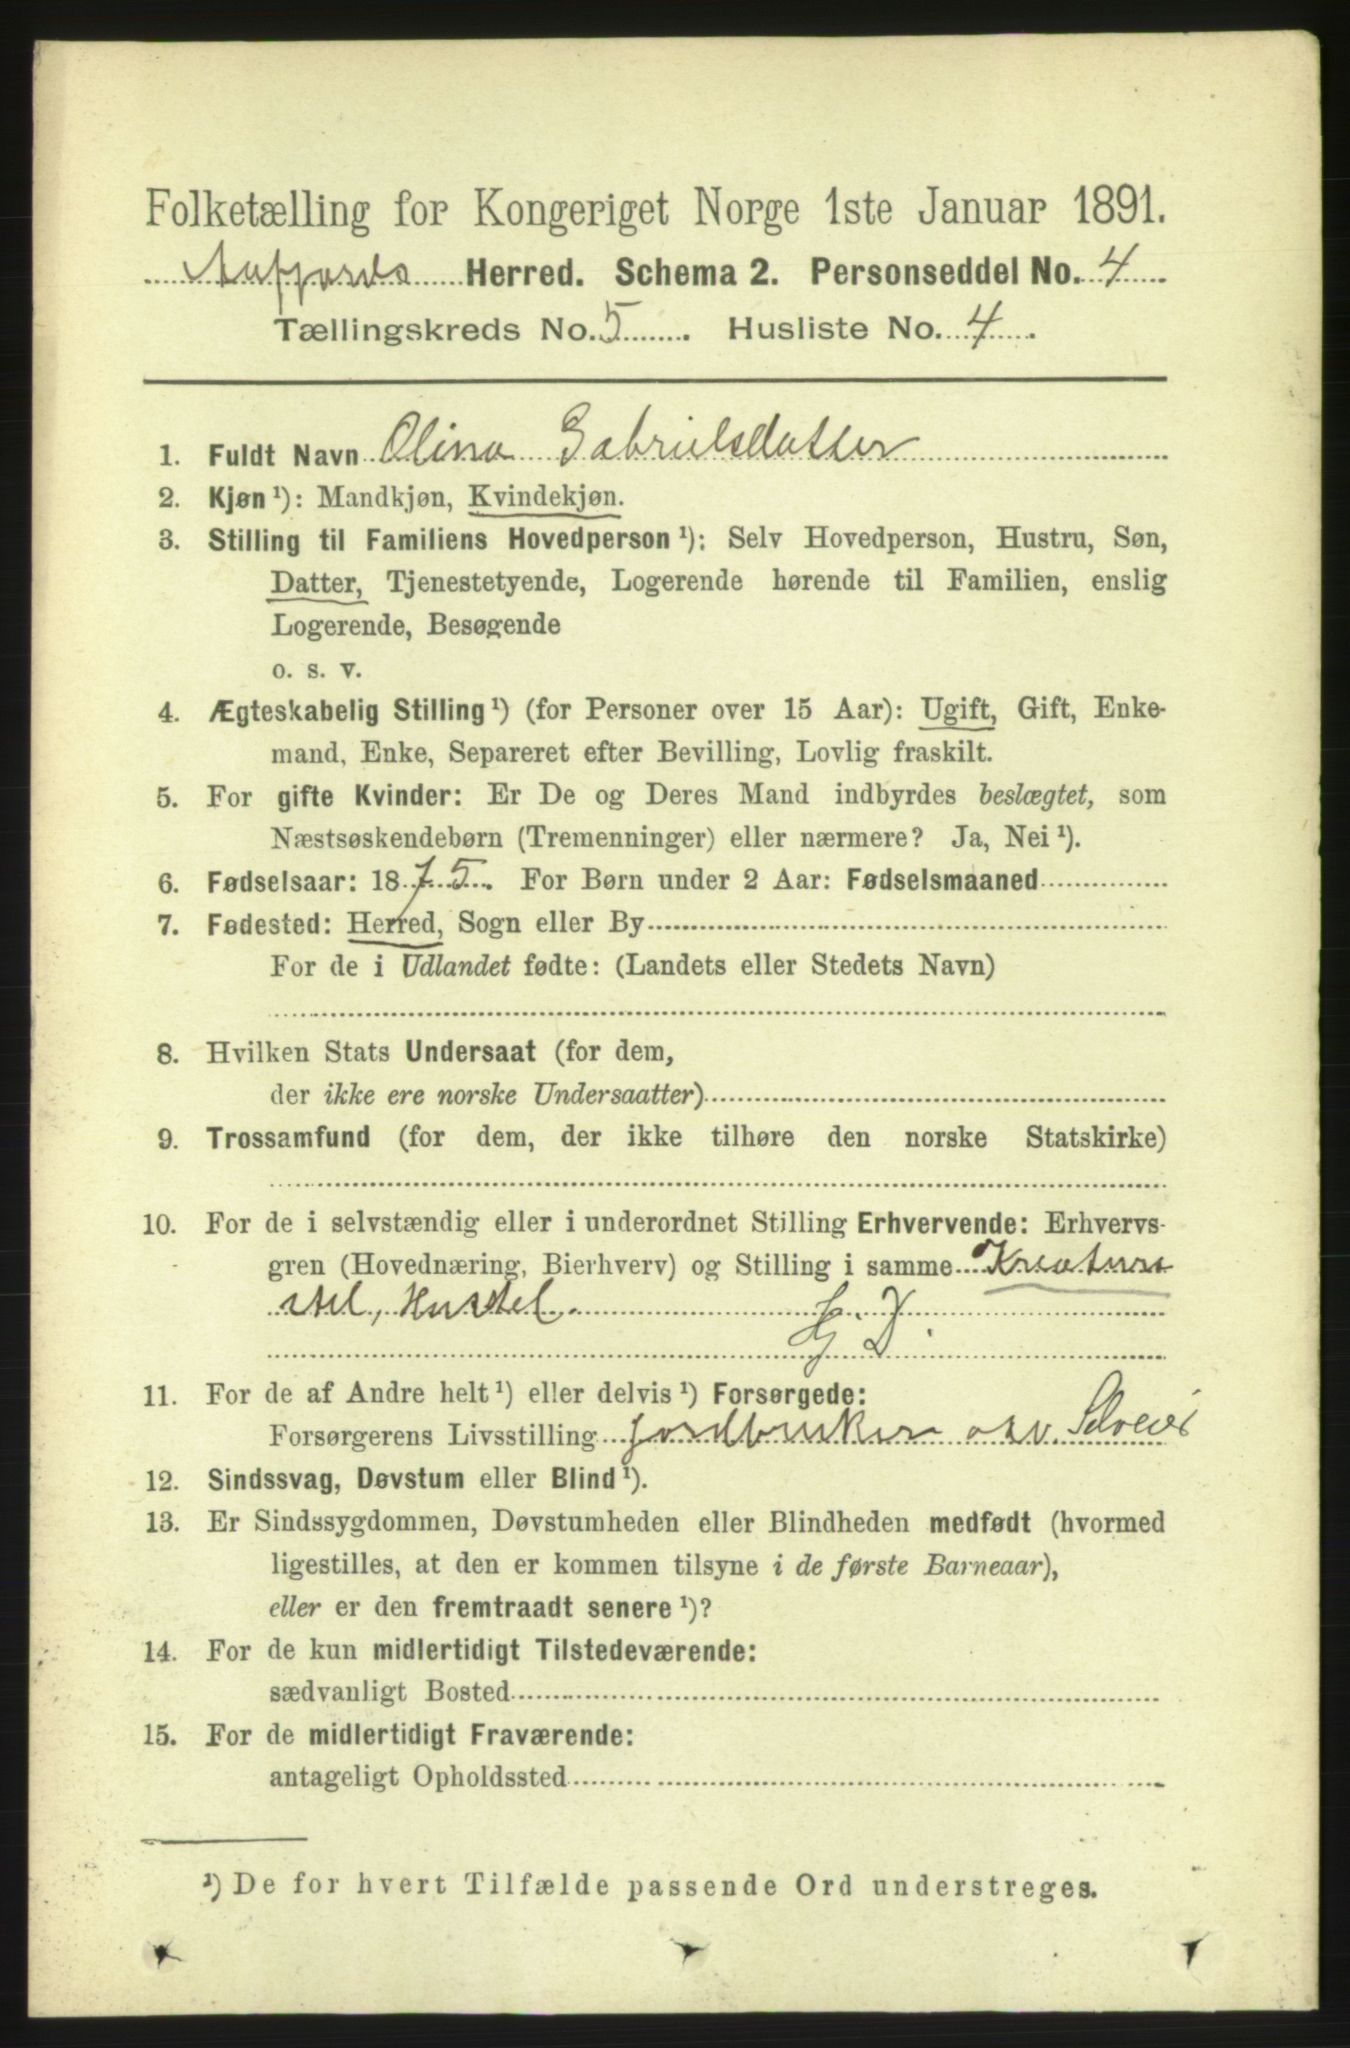 Folketælling for Kongeriget Norge 1ste Januar 1891.
Aafjords Herred. Schema 2. Personseddel No. 4
Tællingskreds No. 5. Husliste No. 4.
1. Fuldt Navn Olina Gabrielsdatter
2. Kjøn ¹): Mandkjøn, Kvindekjøn.
3. Stilling til Familiens Hovedperson ¹): Selv Hovedperson, Hustru, Søn,
Datter, Tjenestetyende, Logerende hørende til Familien, enslig
Logerende, Besøgende
o. s. v.
4. Ægteskabelig Stilling ¹) (for Personer over 15 Aar): Ugift, Gift, Enke-
mand, Enke, Separeret efter Bevilling, Lovlig fraskilt.
5. For gifte Kvinder: Er De og Deres Mand indbyrdes beslægtet, som
Næstsøskendebørn (Tremenninger) eller nærmere? Ja, Nei ¹).
6. Fødselsaar: 1875. For Børn under 2 Aar: Fødselsmaaned
7. Fødested: Herred, Sogn eller By
For de i Udlandet fødte: (Landets eller Stedets Navn)
8. Hvilken Stats Undersaat (for dem,
der ikke ere norske Undersaatter)
9. Trossamfund (for dem, der ikke tilhøre den norske Statskirke)
10. For de i selvstændig eller i underordnet Stilling Erhvervende: Erhvervs-
gren (Hovednæring, Bierhverv) og Stilling i samme Kreature
stel, Husstel. G. D.
11. For de af Andre helt ¹) eller delvis ¹) Forsørgede:
Forsørgerens Livsstilling Jordbruker osv. Selveier
12. Sindssvag, Døvstum eller Blind ¹).
13. Er Sindssygdommen, Døvstumheden eller Blindheden medfødt (hvormed
ligestilles, at den er kommen tilsyne i de første Barneaar),
eller er den fremtraadt senere ¹)?
14. For de kun midlertidigt Tilstedeværende:
sædvanligt Bosted
15. For de midlertidigt Fraværende:
antageligt Opholdssted
¹) De for hvert Tilfælde passende Ord understreges.